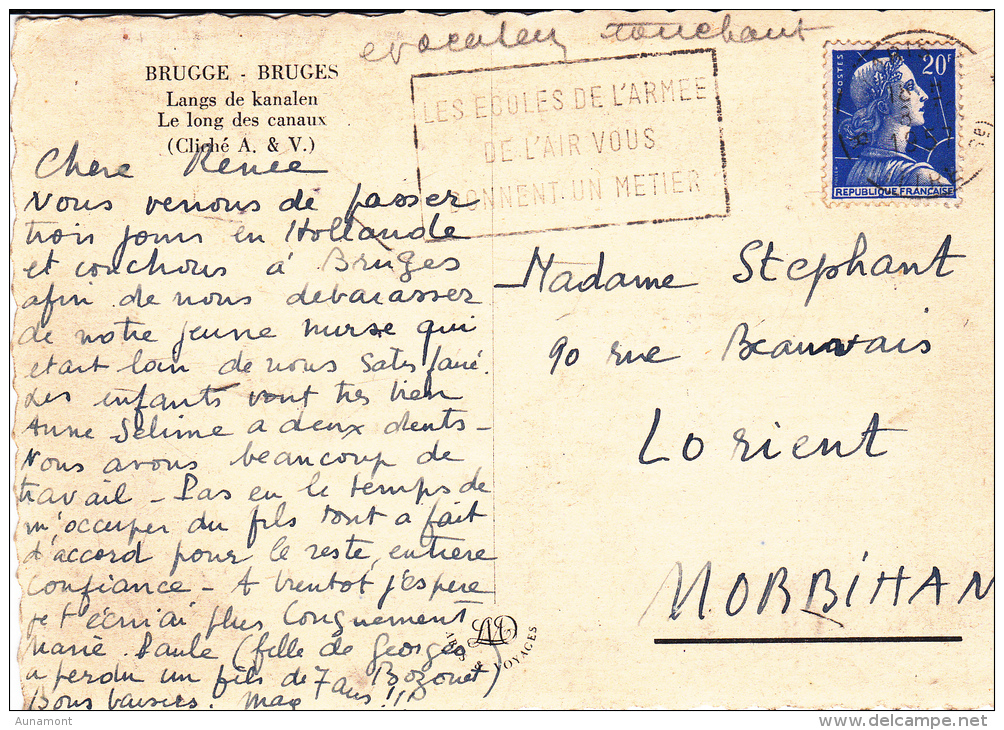 evocateur touchant
BRUGGE - BRUGES
Langs de kanalen
Le long des canaux
(Cliché A. & V.)
LES ECOLES DE L'ARMEE
DE L'AIR VOUS
DONNENT UN METIER
POSTES
20F
1957
REPUBLIQUE FRANÇAISE
Chere Renee
Nous venons de passer
trois jours en Hollande
et couchons à Bruges
afin de nous debarasser
de notre jeune nurse qui
etait loin de nous satisfaire.
Les enfants vont tres bien
Anne Selime a deux dents -
Nous avons beaucoup de
travail - Pas eu le temps de
m'occuper du fils tout a fait
d'accord pour le reste, entière
confiance - A bientot j'espere
je t'ecrirai plus longuement
Marie Paule (fille de Georges
Bozonet)
a perdu un fils de 7 ans !!!
Bons baisers. Mag
Madame Stephant
90 rue Beauvais
Lorient
MORBIHAN
ARTS & VOYAGES
Aunamont
delcampe.net